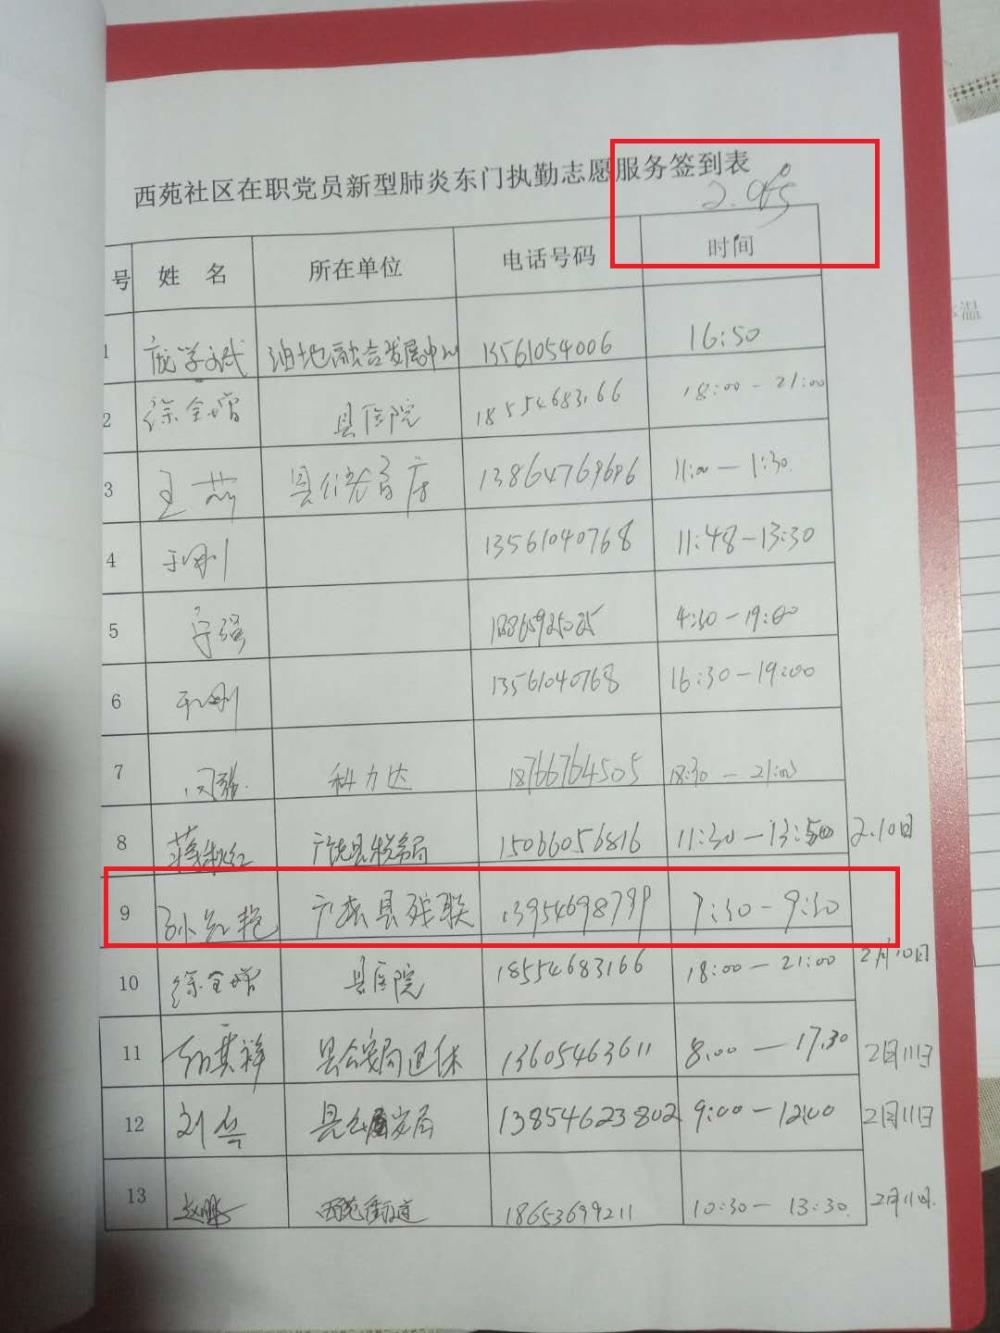 西苑社区在职党员新型肺炎东门执勤志愿服务签到表
号 姓 名 所在单位 电话号码 时间
1 庞学斌 油地融合发展中心 13561054006 16:50
2 徐全增 县医院 18554683166 18:00-21:00
3 王燕 13864769686 11:00-1:30
4 13561040768 11:48-13:30
5 强 4:30-19:00
6 13561040768 16:30-19:00
7 闫强 科力达 18766764505 18:30-21:00
8 蒋秋红 广饶县税务局 15066056816 11:30-13:50 2.10日
9 孙红艳 广饶县残联 13954698799 7:30-9:30
10 徐全增 县医院 18554683166 18:00-21:00 2月10日
11 县公安局退休 13605463611 8.00-17.30 2月11日
12 刘 13854623802 9:00-12:00 2月11日
13 赵鹏 西苑街道 18653699211 10:30-13:30 2月11日
温